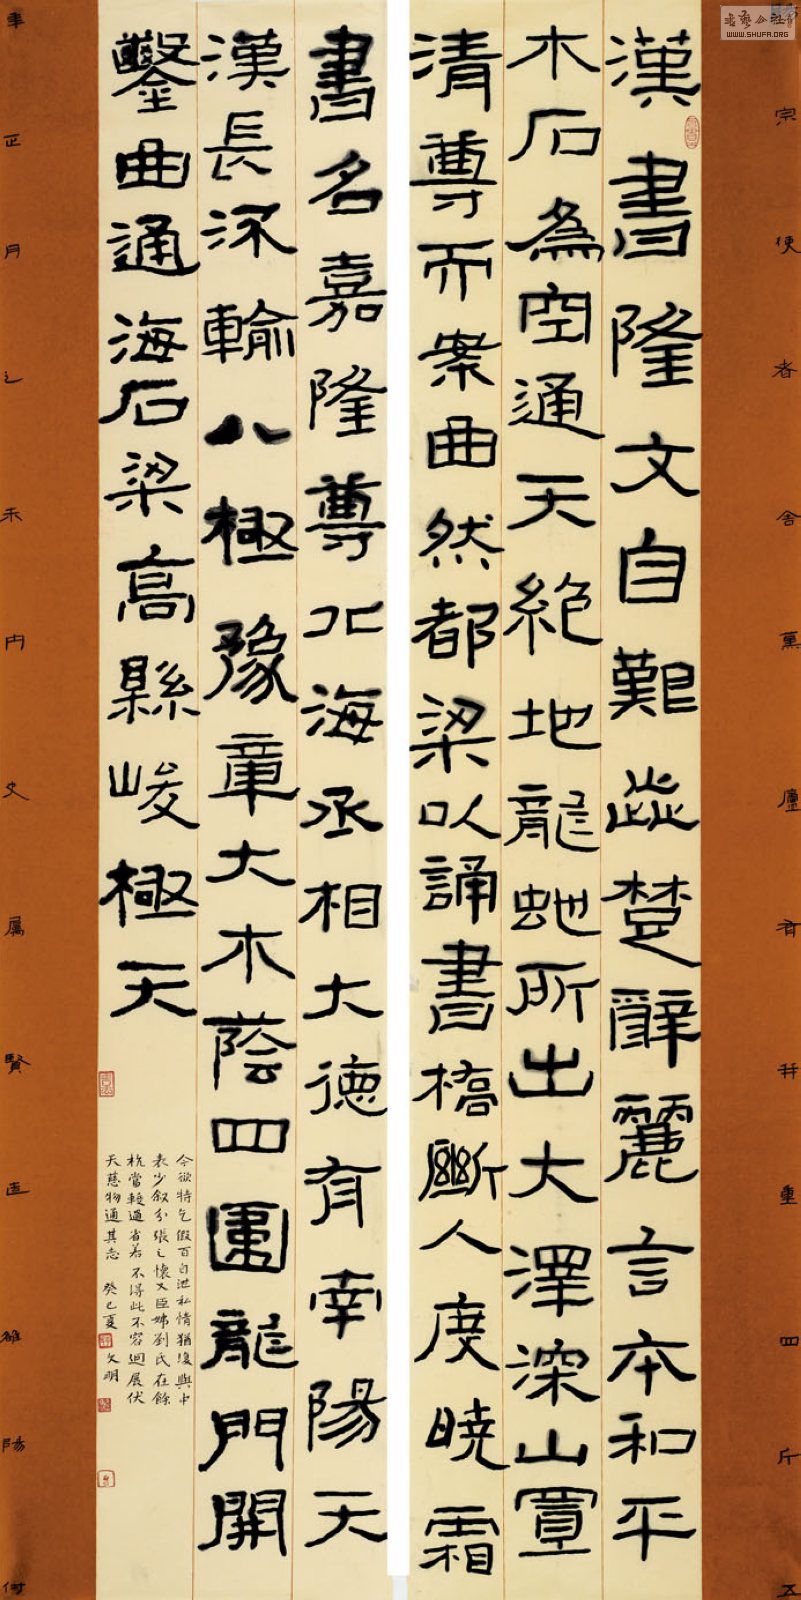 漢書隆文自難此楚辭麗言本和平
木石為空通天絕地龍虵所出大澤深山置
清尊而案曲然都梁以誦書橋斷人度曉霜
書名嘉隆尊北海丞相大德有南陽天
漢長深輸八極豫章大木蔭四圍龍門開
鑿曲通海石梁高縣峻極天
今欲特乞假百日泄私情猶復與中
表少叙分張之懷又臣姊劉氏在餘
杭當輕過省若不得此不容迴展伏
天慈物通其志 癸巳夏 文明
宗便者舍薰廬有并重四斤五
年正月之未內史屬賢造雒陽付
書藝公社
WWW.SHUFA.ORG